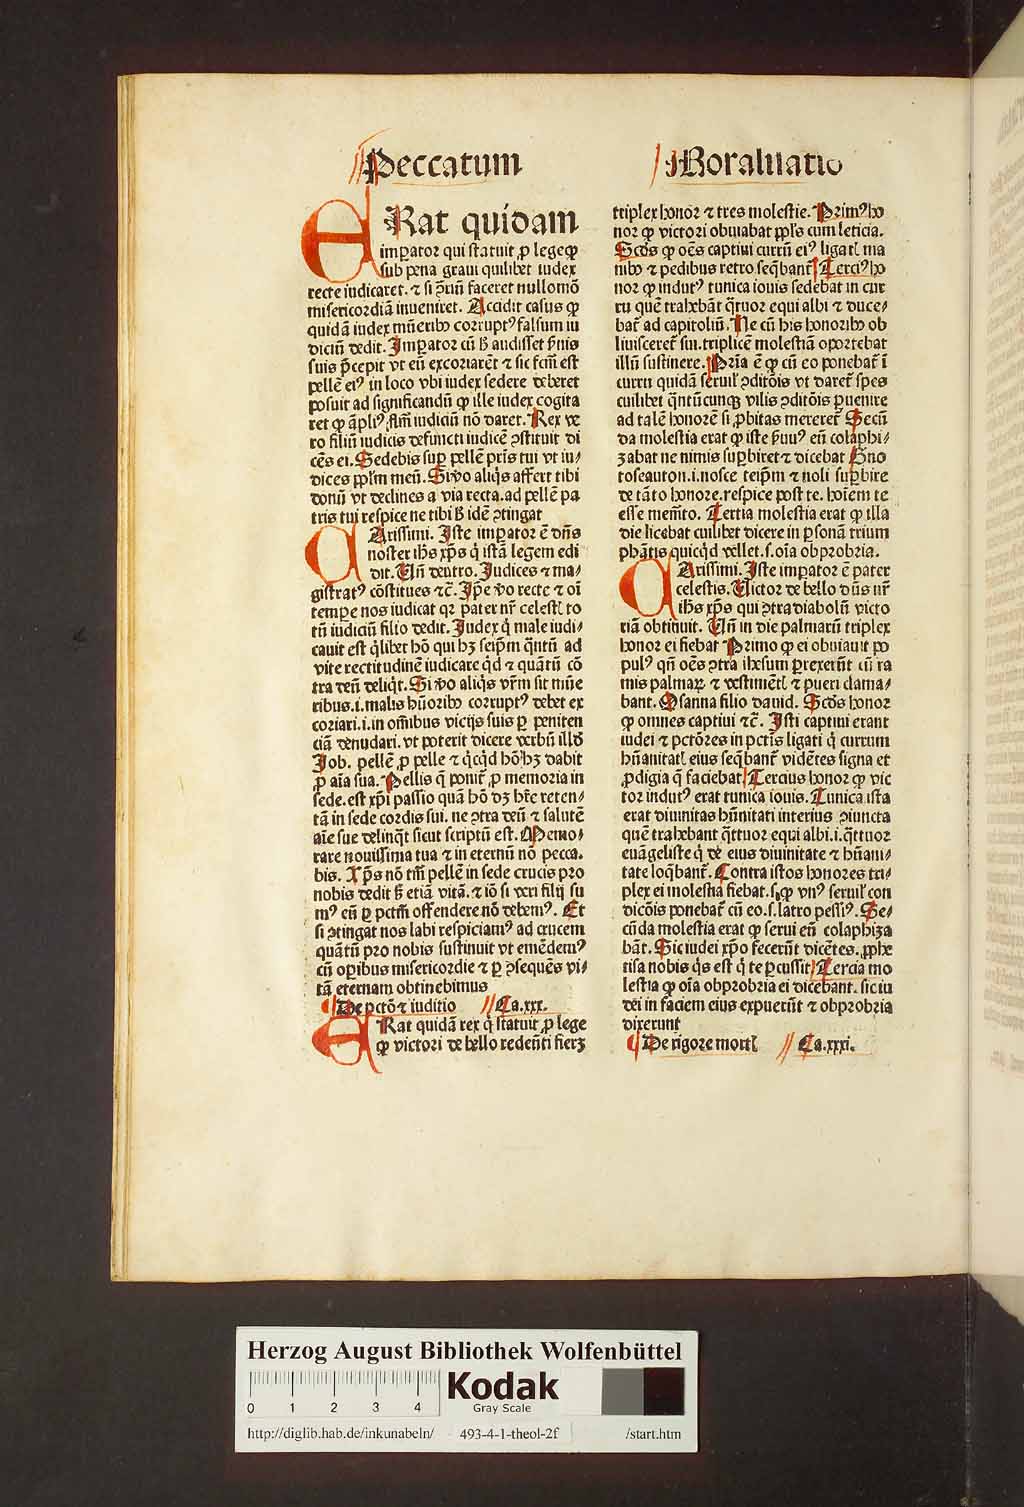 Peccatum
Moralitatio
ERat quidam
imꝑator qui statuit ꝓ lege ꝙ
sub pena graui quilibet iudex
recte iudicaret. ⁊ si ꝯ̃riũ faceret nullomõ
misericordiã inueniret. Accidit casus ꝙ
quidã iudex mũeribꝰ corruptꝰ falsum iu
diciũ dedit. Imꝑator cũ
suis p̃cepit vt eũ excoriarẽt ⁊ sic fcm̃ est
pellẽ eiꝰ in loco vbi iudex sedere deberet
posuit ad significandũ ꝙ ille iudex cogita
ret ꝙ ãpliꝰ flm̃ iudiciũ nõ daret. Rex ve
ro filiũ iudicis defuncti iudicẽ ꝯstituit di
cẽs ei. Sedebis suꝑ pellẽ pr̃is tui vt iu⸗
dices ppl̃m meũ. Si vͦo aliqͥs affert tibi
donũ vt declines a via recta. ad pellẽ pa
tris tui respice ne tibi hͦ idẽ ꝯtingat
CArissimi. Iste imꝑator ẽ dñs
noster ihs̃ xp̃s qͥ istã legem edi
dit. Un̄ deutro. Iudices ⁊ ma⸗
gistratꝰ cõstitues ⁊c̃. Ip̃e vͦo recte ⁊ oĩ
tempe nos iudicat qꝛ pater nr̃ celestꝭ to
tũ iudiciũ filio dedit. Iudex qͥ male iudi⸗
cauit est qͥlibet hõ qui hꝫ seip̃m q̃ntũ ad
vite rectitudinẽ iudicare qͥd ⁊ quãtũ cõ
tra deũ deliqͥt. Si vͦo aliqͥs vr̃m sit mũe
ribus .i. malis hũoribꝰ corruptꝰ debet ex
coriari .i. in om̃ibus vicijs suis ꝑ peniten
ciã denudari. vt poterit dicere verbũ illd̃
Job. pellẽ ꝓ pelle ⁊ qͥcqͥd hõ hꝫ dabit
ꝓ aĩa sua. Pellis q̃ ponit̃ ꝓ memoria in
sede. est xp̃i passio quã hõ dꝫ hr̃e reten⸗
tã in sede cordis sui. ne ꝯtra deũ ⁊ salutẽ
aĩe sue delinqͣt sicut scriptũ est. Memo⸗
rare nouissima tua ⁊ in eternũ nõ pecca⸗
bis. Xp̃s nõ tm̃ pellẽ in sede crucis pro
nobis dedit sꝫ etiã vitã. ⁊ iõ si veri filij su
mꝰ eũ ꝑ pctm̃ offendere nõ debemꝰ. Et
si ꝯtingat nos labi respiciamꝰ ad crucem
quãtũ pro nobis sustinuit vt emẽdemꝰ
cũ oꝑibus misericordie ⁊ ꝑ ꝯsequẽs vi⸗
tã eternam obtinebimus
De pctõ ⁊ iuditio Ca.xxx.
ERat quidã rex qͥ statuit ꝓ lege
ꝙ victori de bello redeũti fierꝫ
triplex honor ⁊ tres molestie. Primꝰ ho
nor ꝙ victori obuiabat ppl̃s cum leticia.
Scd̃s ꝙ oẽs captiui currũ eiꝰ ligatꝭ ma
nibꝰ ⁊ pedibus retro seq̃bant̃. Terciꝰ ho
nor ꝙ indutꝰ tunica iouis sedebat in cur
ru quẽ trahebãt q̃tuor equi albi ⁊ duce⸗
bat̃ ad capitoliũ. Ne cũ his honoribꝰ ob
liuisceret̃ sui. triplicẽ molestiã oportebat
illũ sustinere. Pria ẽ ꝙ cũ eo ponebat̃ ĩ
curru quidã seruilꝭ ꝯditõis vt daret̃ spes
cuilibet q̃ntũcunqꝫ vilis ꝯditõis ꝑuenire
ad talẽ honorẽ si ꝓbitas mereret̃. Secũ
da molestia erat ꝙ iste ẜuuꝰ eũ colaphi⸗
zabat ne nimis suꝑbiret ⁊ dicebat Gno
toseauton .i. nosce teip̃m ⁊ noli suꝑbire
de tãto honore. respice post te. hoĩem te
esse mem̃to. Tertia molestia erat ꝙ illa
die licebat cuilibet dicere in ꝑsonã trium
phãtis quicqͥd vellet .s. oĩa obprobria.
CArissimi. Iste imꝑator ẽ pater
celestis. Uictor de bello dñs nr̃
ihs̃ xp̃s qui ꝯtra diabolũ victo
riã obtinuit. Un̄ in die palmarũ triplex
honor ei fiebat. Primo ꝙ ei obuiauit po
pulꝰ qñ oẽs ꝯtra ihesum ꝑrexerũt cũ ra
mis palmaꝝ ⁊ vestimẽtꝭ ⁊ pueri clama⸗
bant. Osanna filio dauid. Scd̃s honor
ꝙ omnes captiui ⁊c̃. Isti captiui erant
iudei ⁊ pctõres in pctĩs ligati qͥ currum
hũanitatꝭ eius seq̃bant̃ vidẽtes signa et
ꝓdigia q̃ faciebat. Tercius honor ꝙ vic
tor indutꝰ erat tunica iouis. Tunica ista
erat diuinitas hũnitati interius ꝯiuncta
quẽ trahebant q̃ttuor equi albi .i. q̃ttuor
euãgeliste qͥ de eius diuinitate ⁊ hũani⸗
tate loq̃bant̃. Contra istos honores tri⸗
plex ei molestia fiebat. s. ꝙ vnꝰ seruilꝭ con
dicõis ponebat̃ cũ eo .s. latro pessiꝰ. Se⸗
cũda molestia erat ꝙ serui eũ colaphiza
bãt. Sic iudei xp̃o fecerũt dicẽtes. ꝓphe
tisa nobis qͥs est qͥ te ꝑcussit. Tercia mo
lestia ꝙ oĩa obprobria ei dicebant. sic iu
dei in faciem eius expuerũt ⁊ obprobria
dixerunt
De rigore mortꝭ Ca.xxxi.
Herzog August Bibliothek Wolfenbüttel
0 1 2 3 4
Kodak
Gray Scale
http://diglib.hab.de/inkunabeln/ 493-4-1-theol-2f /start.htm